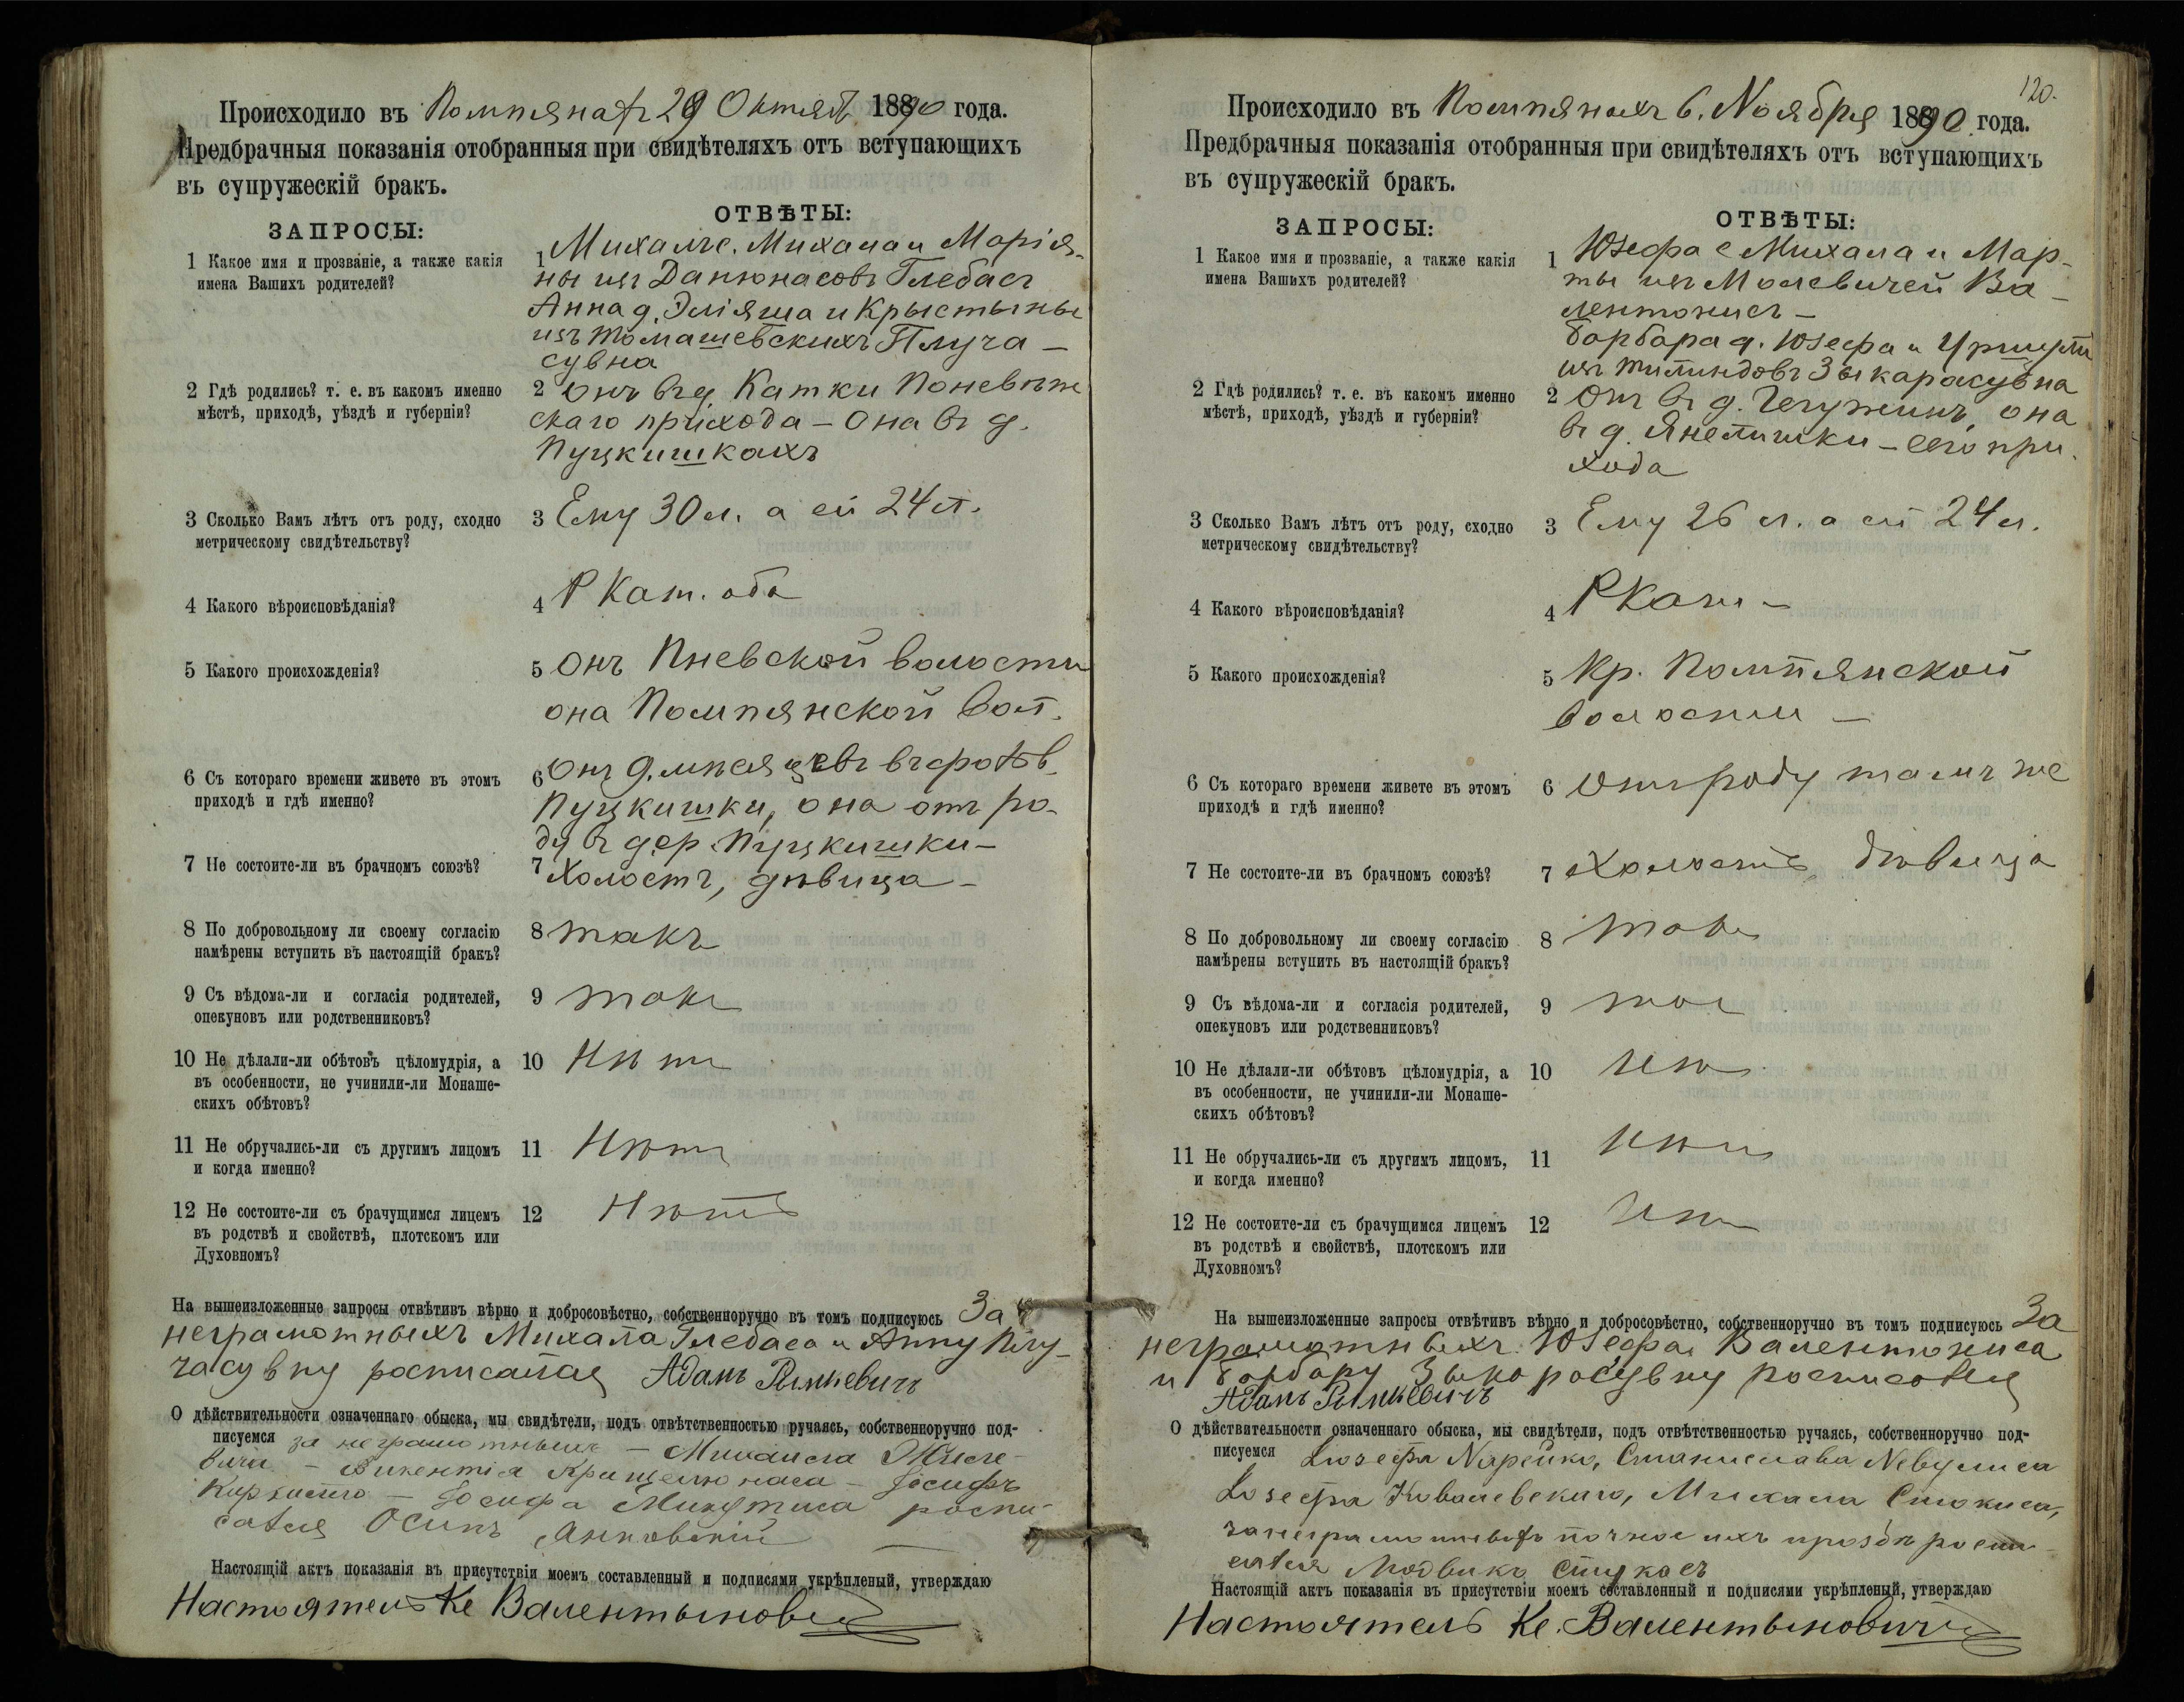 Происходило въ Помпянахъ 29 Октяб. 1890 года.
Предбрачныя показанія отобранныя при свидѣтеляхъ отъ вступающихъ
въ супружескій бракъ.
ЗАПРОСЫ:
ОТВѢТЫ:
1 Какое имя и прозваніе, а также какія
имена Вашихъ родителей?
1 Михалъ с. Михала и Марія-
ны изъ Данюнасовъ Глебасъ
Анна д. Эліяша и Крыстыны
изъ Томашевскихъ Плуча-
сувна
2 Гдѣ родились? т. е. въ какомъ именно
мѣстѣ, приходѣ, уѣздѣ и губерніи?
2 Онъ въ д. Катки Поневѣж
скаго прихода - Она въ д.
Пуцкишкахъ
3 Сколько Вамъ лѣтъ отъ роду, сходно
метрическому свидѣтельству?
3 Ему 30 л. а ей 24 л.
4 Какого вѣроисповѣданія?
4 Р Кат. оба
5 Какого происхожденія?
5 Онъ Пневской волости
она Помпянской вол.
6 Съ котораго времени живете въ этомъ
приходѣ и гдѣ именно?
6 Онъ 9. мѣсяцевъ въ
Пуцкишки, она отъ ро-
ду въ дер. Пуцкишки-
7 Не состоите-ли въ брачномъ союзѣ?
7 Холостъ, дѣвица-
8 По добровольному ли своему согласію
намѣрены вступить въ настоящій бракъ?
8 такъ
9 Съ вѣдома-ли и согласія родителей,
опекуновъ или родственниковъ?
9 такъ
10 Не дѣлали-ли обѣтовъ цѣломудрія, а
въ особенности, не учинили-ли Монаше-
скихъ обѣтовъ?
10 Нѣтъ
11 Не обручались-ли съ другимъ лицомъ
и когда именно?
11 Нѣтъ
12 Не состоите-ли съ брачущимся лицемъ
въ родствѣ и свойствѣ, плотскомъ или
Духовномъ?
12 Нѣтъ
На вышеизложенные запросы отвѣтивъ вѣрно и добросовѣстно, собственноручно въ томъ подписуюсь За
неграмотныхъ Михала Глебаса и Анну Плу-
часувну росписался Адамъ Рымкевичъ
О дѣйствительности означеннаго обыска, мы свидѣтели, подъ отвѣтственностью ручаясь, собственноручно под-
писуемся за неграмотныхъ - Михаила
- Викентія - Іосифъ
- Іосифа Микутиса роспи-
сался Осипъ Янковскій
Настоящій актъ показанія въ присутствіи моемъ составленный и подписями укрѣпленый, утверждаю
Настоятель Кс Валентыновичъ
120.
Происходило въ Помпянахъ 6. Ноября 1890 года.
Предбрачныя показанія отобранныя при свидѣтеляхъ отъ вступающихъ
въ супружескій бракъ.
ЗАПРОСЫ:
ОТВѢТЫ:
1 Какое имя и прозваніе, а также какія
имена Вашихъ родителей?
1 Юзефъ с Михала и Мар-
ты изъ Молевичей Ва-
лентонисъ -
Барбара д. Юзефа и Уршули
изъ Тылиндовъ Зыкарасувна
2 Гдѣ родились? т. е. въ какомъ именно
мѣстѣ, приходѣ, уѣздѣ и губерніи?
2 Онъ въ д. она
въ д. Янелишки - сего при-
хода
3 Сколько Вамъ лѣтъ отъ роду, сходно
метрическому свидѣтельству?
3 Ему 26 л. а ей 24 л.
4 Какого вѣроисповѣданія?
4 Р Кат -
5 Какого происхожденія?
5 Кр. Помпянской
волости -
6 Съ котораго времени живете въ этомъ
приходѣ и гдѣ именно?
6 Отъ роду тамъ же
7 Не состоите-ли въ брачномъ союзѣ?
7 Холостъ, дѣвица
8 По добровольному ли своему согласію
намѣрены вступить въ настоящій бракъ?
8 такъ
9 Съ вѣдома-ли и согласія родителей,
опекуновъ или родственниковъ?
9 так
10 Не дѣлали-ли обѣтовъ цѣломудрія, а
въ особенности, не учинили-ли Монаше-
скихъ обѣтовъ?
10 нѣтъ
11 Не обручались-ли съ другимъ лицомъ,
и когда именно?
11 нѣтъ
12 Не состоите-ли съ брачущимся лицемъ
въ родствѣ и свойствѣ, плотскомъ или
Духовномъ?
12 нѣтъ
На вышеизложенные запросы отвѣтивъ вѣрно и добросовѣстно, собственноручно въ томъ подписуюсь За
неграмотныхъ Юзефа Валентониса
и Барбару Зыкарасувну росписался
Адамъ Рымкевичъ
О дѣйствительности означеннаго обыска, мы свидѣтели, подъ отвѣтственностью ручаясь, собственноручно под-
писуемся Станислава
Ковалевскаго, Михала
за неграмотныхъ по ихъ прозбѣ роспи-
сался
Настоящій актъ показанія въ присутствіи моемъ составленный и подписями укрѣпленый, утверждаю
Настоятель Кс. Валентыновичъ